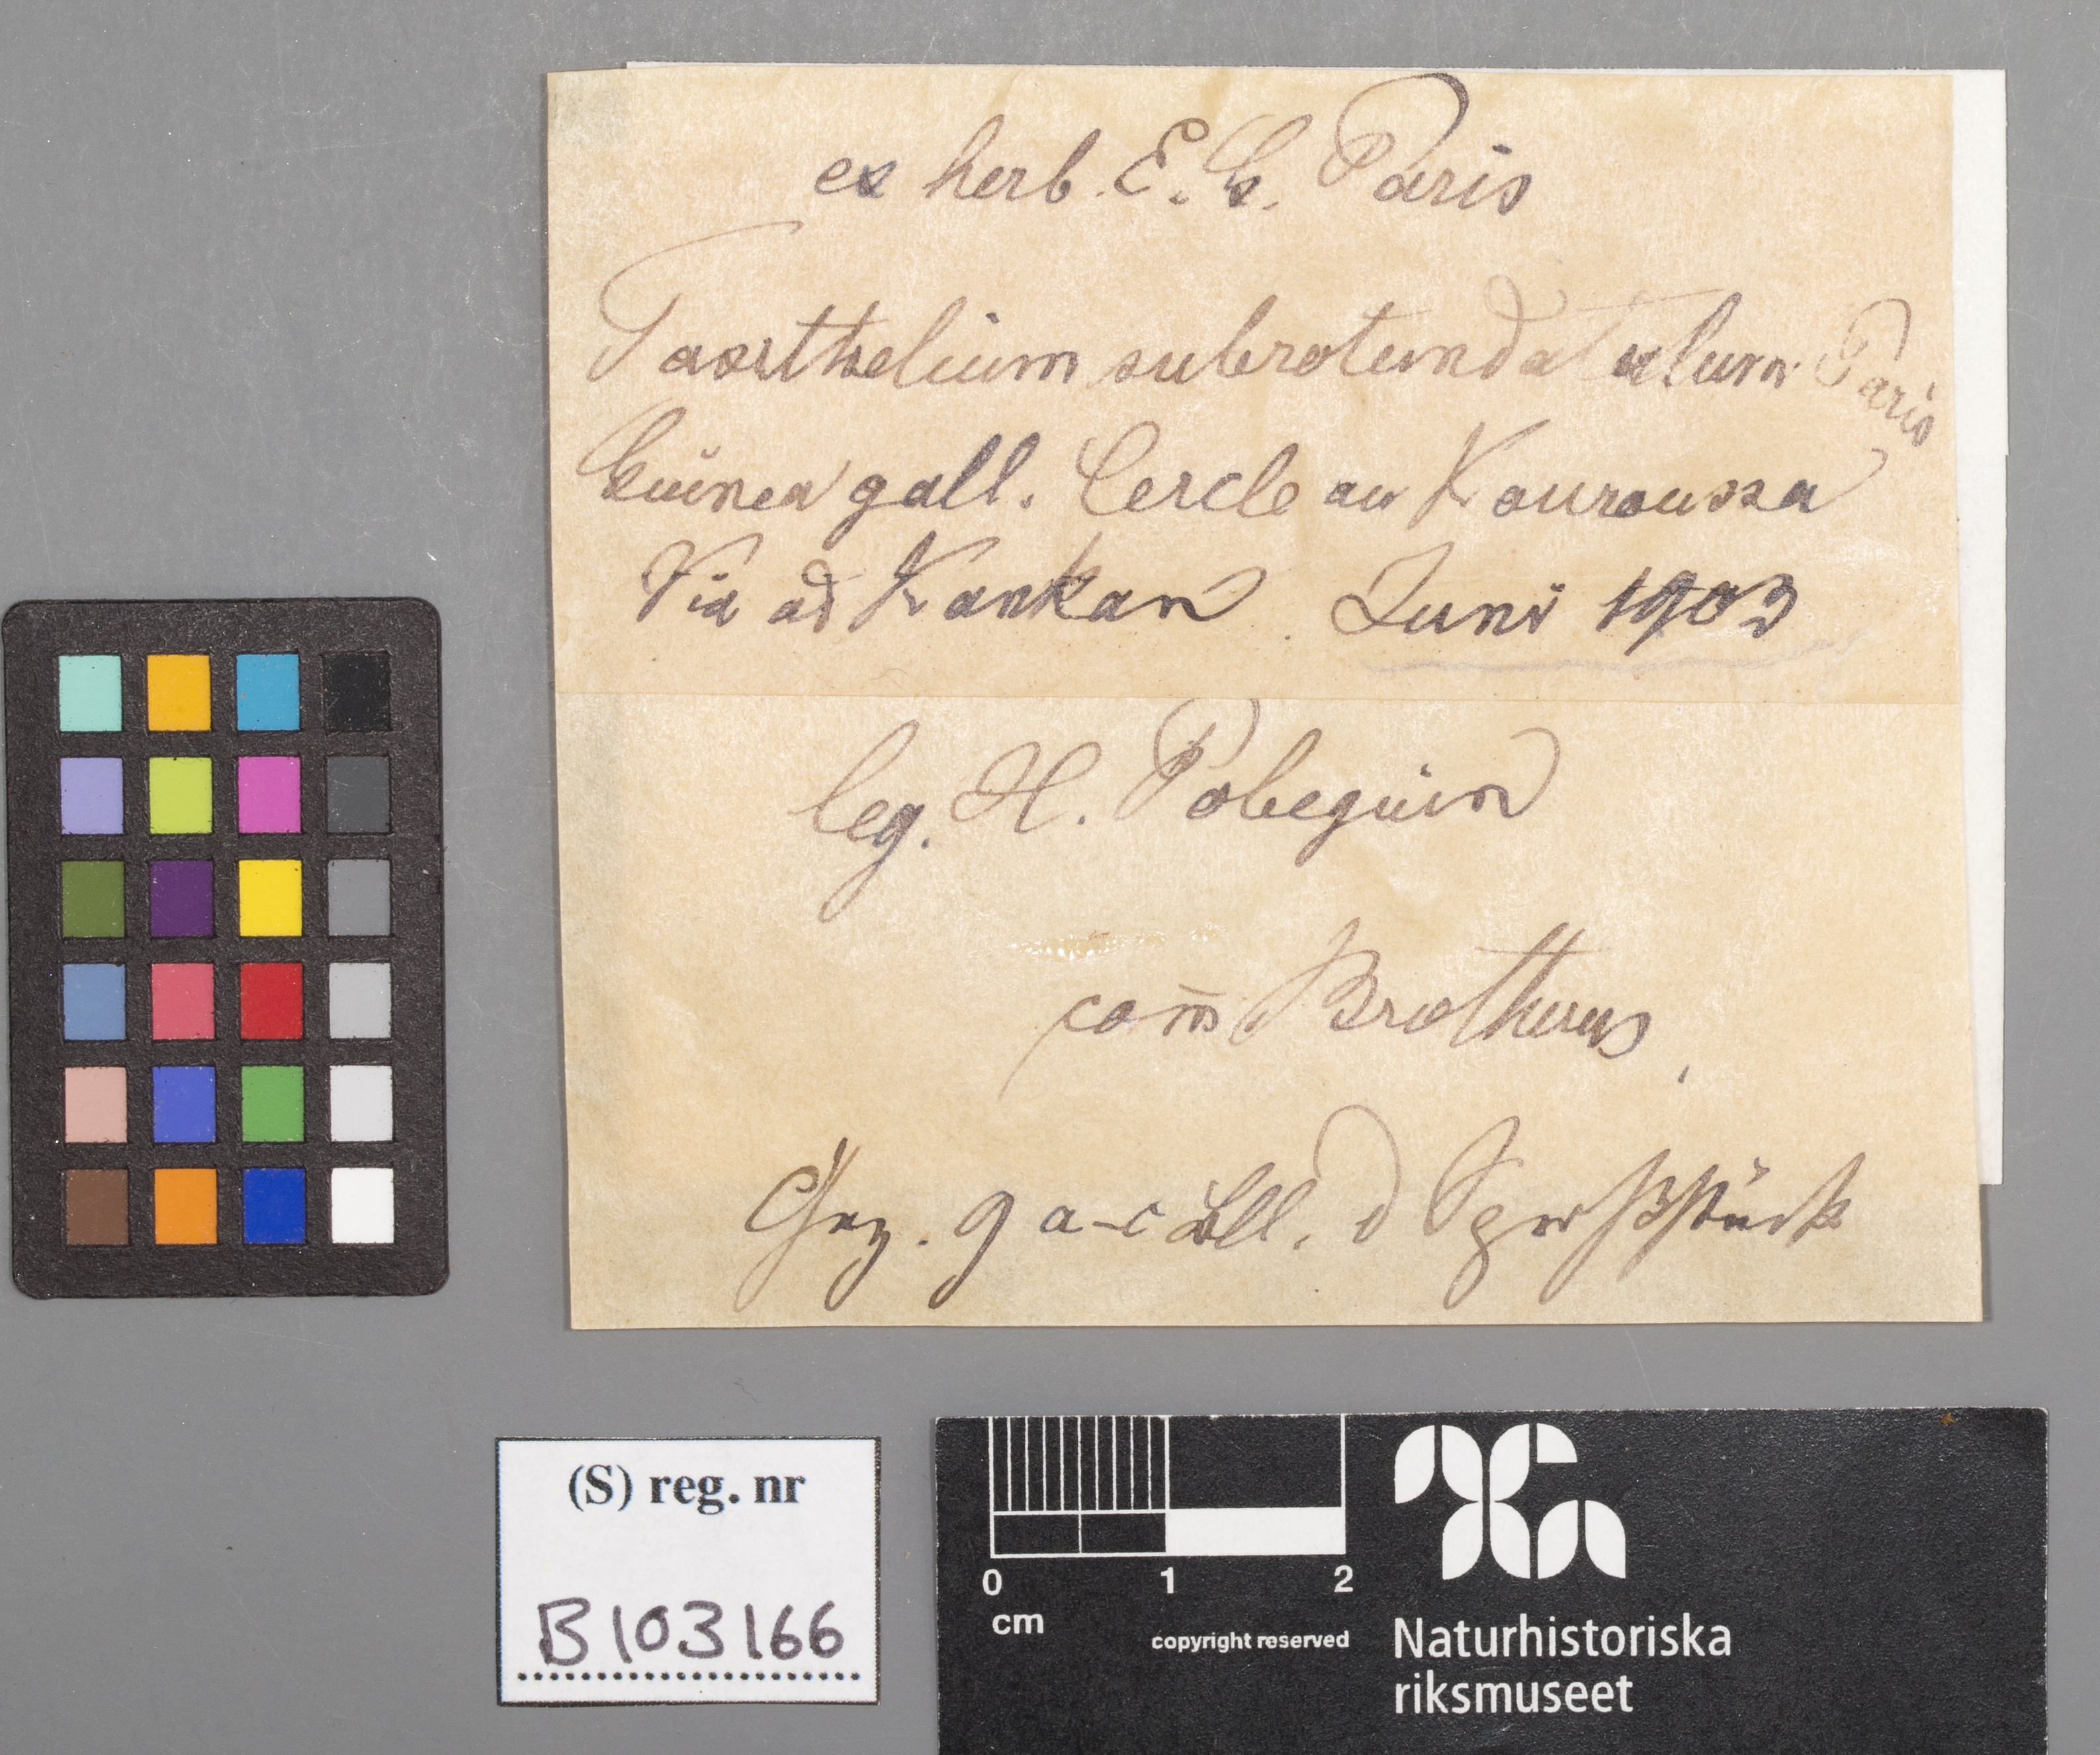 ex herb. E. G. Paris
Taxithelium subrotundatulum Paris
Guinea gall. Cercle au Kouroussa
Via ad Kankan. Juni 1903
leg. H. Pobeguin
com̄ Brotherus,
Gez. 9 a-c Bll. d Sproßstück
(S) reg. nr
B103166
0 1 2
cm
copyright reserved
Naturhistoriska
riksmuseet